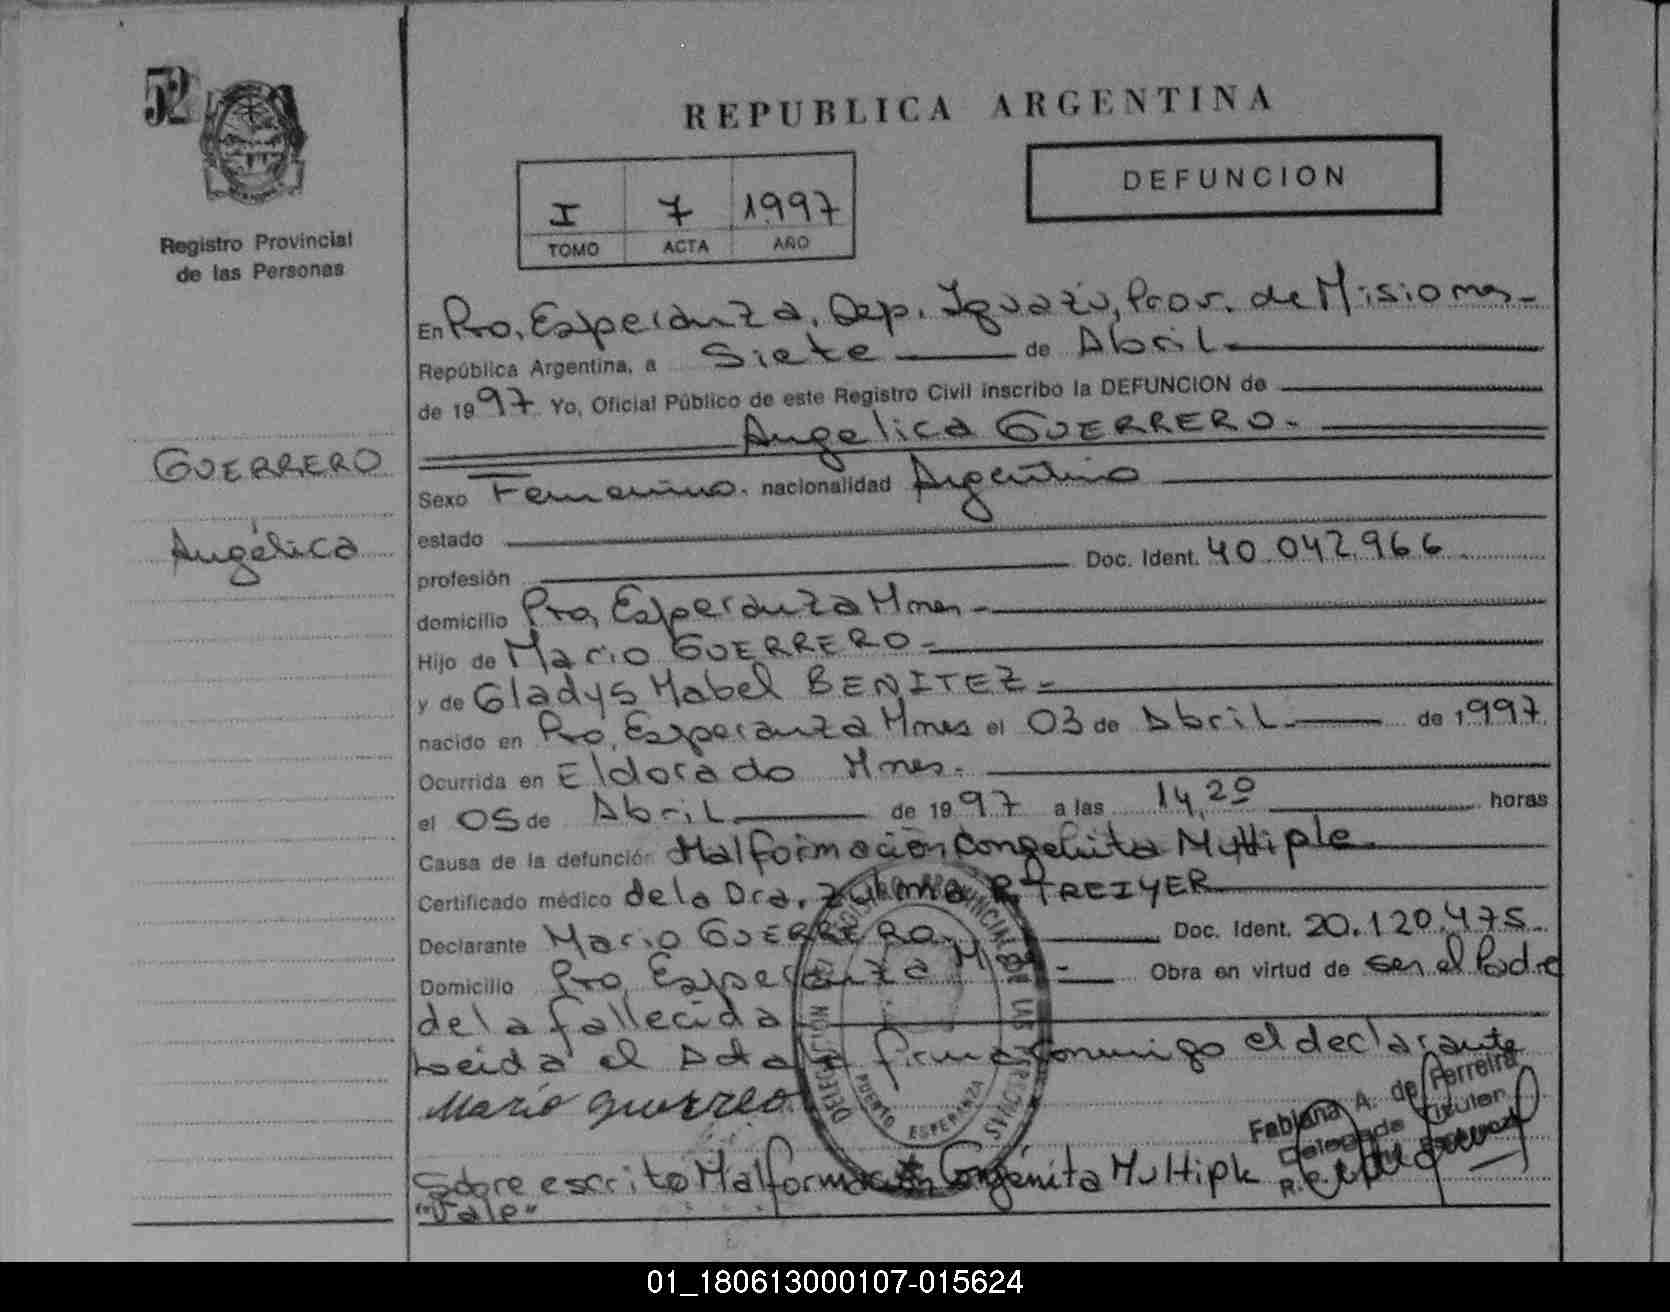 52
Registro Provincial
de las Personas
GUERRERO
Angélica
REPUBLICA ARGENTINA
DEFUNCION
I 7 1997
TOMO ACTA AÑO
En Pto. Esperanza, Dep. Iguazú, Prov. de Misiones-
República Argentina, a Siete de Abril
de 1997 Yo, Oficial Público de este Registro Civil inscribo la DEFUNCION de
Angelica GUERRERO.
Sexo Femenino. nacionalidad Argentina
estado
profesión Doc. Ident. 40.042.966
domicilio Pto. Esperanza Mnes-
Hijo de Mario GUERRERO-
y de Gladys Mabel BENITEZ-
nacido en Pto. Esperanza Mnes el 03 de Abril de 1997
Ocurrida en Eldorado Mnes.
el 05 de Abril de 1997 a las 14,20 horas
Causa de la defunción Malformación Congenita Multiple
Certificado médico de la Dra. Zulma R. TREIYER
Declarante Mario GUERRERO Doc. Ident. 20.120.475
Domicilio Pto. Esperanza Obra en virtud de ser el Padre
de la fallecida
Leida el Acta firma conmigo el declarante
Mario guerrero
PUERTO ESPERANZA
Fabiana A. de Ferreira
Delegada Titular
Sobre escrito Malformación Congénita Multiple
"Vale"
01_180613000107-015624